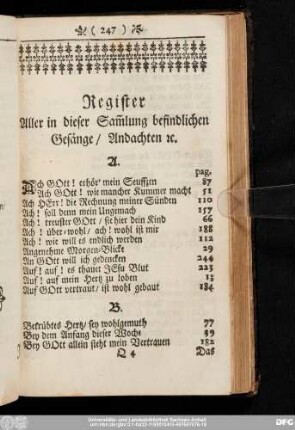 ( 247 )
Register
Aller in dieser Sam̃lung befindlichen
Gesänge / Andachten ꝛc.
A.
pag.
Ach GOtt! erhör' mein Seuffzen 87
Ach GOtt! wie mancher Kummer macht 51
Ach HErr! die Rechnung meiner Sünden 110
Ach! soll denn mein Ungemach 157
Ach! treuster GOtt / sieh hier dein Kind 66
Ach! über-wohl / ach! wohl ist mir 188
Ach! wie will es endlich werden 112
Angenehme Morgen-Blicke 29
An GOtt will ich gedencken 244
Auf! auf! es thauet JEsu Blut 223
Auf! auf mein Hertz zu loben 13
Auf GOtt vertraut / ist wohl gebaut 184
B.
Bekrübtes Hertz / sey wohlgemuth 77
Bey dem Anfang dieser Woche 39
Bey GOtt allein steht mein Vertrauen 182
Q 4 Das
Universitäts- und Landesbibliothek Sachsen-Anhalt
DFG